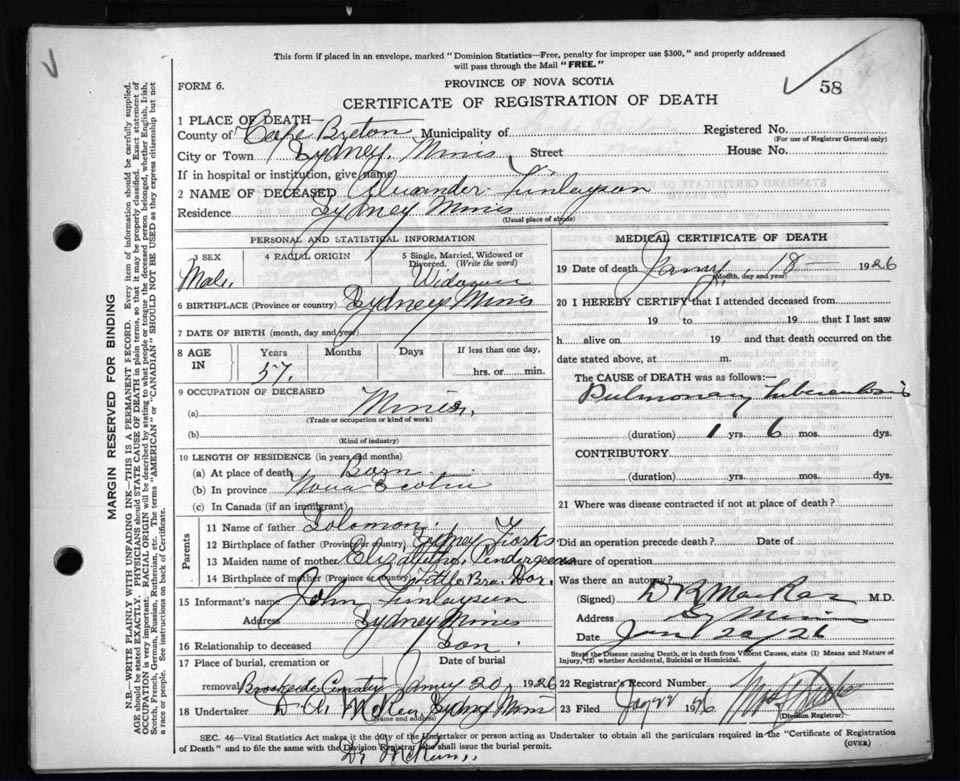 This form if placed in an envelope, marked "Dominion Statistics—Free, penalty for improper use $300," and properly addressed
will pass through the Mail "FREE."
FORM 6.
PROVINCE OF NOVA SCOTIA
58
CERTIFICATE OF REGISTRATION OF DEATH
1 PLACE OF DEATH—
County of Cape Breton Municipality of Registered No.
(For use of Registrar General only)
City or Town Sydney Mines Street House No.
If in hospital or institution, give name
2 NAME OF DECEASED Alexander Finlayson
Residence Sydney Mines
(Usual place of abode)
PERSONAL AND STATISTICAL INFORMATION
3 SEX 4 RACIAL ORIGIN 5 Single, Married, Widowed or
Divorced. (Write the word)
Male Widower
6 BIRTHPLACE (Province or country) Sydney Mines
7 DATE OF BIRTH (month, day and year)
8 AGE IN Years Months Days If less than one day,
57. hrs. or min.
9 OCCUPATION OF DECEASED
(a) Miner.
(Trade or occupation or kind of work)
(b)
(Kind of industry)
10 LENGTH OF RESIDENCE (in years and months)
(a) At place of death Born
(b) In province Nova Scotia
(c) In Canada (if an immigrant)
Parents
11 Name of father Solomon.
12 Birthplace of father (Province or country) Sydney Forks
13 Maiden name of mother Elizabeth
14 Birthplace of mother (Province or country) Little Bras Dor.
15 Informant's name John Finlayson
Address Sydney Mines
16 Relationship to deceased Son.
17 Place of burial, cremation or Date of burial
removal Brookside Cemetery 20 1926
18 Undertaker Sydney Mines
(Name and address)
MEDICAL CERTIFICATE OF DEATH
19 Date of death 18 1926
(Month, day and year)
20 I HEREBY CERTIFY that I attended deceased from
19 to 19 that I last saw
h alive on 19 and that death occurred on the
date stated above, at m.
The CAUSE OF DEATH was as follows:—
Pulmonary Tuberculosis
(duration) 1 yrs. 6 mos. dys.
CONTRIBUTORY
(duration) yrs. mos. dys.
21 Where was disease contracted if not at place of death?
Did an operation precede death? Date of
Nature of operation
Was there an autopsy?
(Signed) D R MacRae M.D.
Address Sy Mines
Date Jan 20/26
State the Disease causing Death, or in death from Violent Causes, state (1) Means and Nature of
Injury, (2) whether Accidental, Suicidal or Homicidal.
22 Registrar's Record Number
23 Filed Jan 22 1926
(Division Registrar)
SEC. 46—Vital Statistics Act makes it the duty of the Undertaker or person acting as Undertaker to obtain all the particulars required in the "Certificate of Registration
of Death" and to file the same with the Division Registrar who shall issue the burial permit.
(OVER)
MARGIN RESERVED FOR BINDING
N.B.—WRITE PLAINLY WITH UNFADING INK—THIS IS A PERMANENT RECORD. Every item of information should be carefully supplied.
AGE should be stated EXACTLY. PHYSICIANS should STATE CAUSE OF DEATH in plain terms, so that it may be properly classified. Exact statement of
OCCUPATION is very important. RACIAL ORIGIN will be described by stating to what people or tongue the deceased person belonged, whether English, Irish,
Scotch, French, German, Russian, Ruthenian, etc. The terms "AMERICAN" or "CANADIAN" SHOULD NOT BE USED as they express citizenship but not
a race or people. See instructions on back of Certificate.